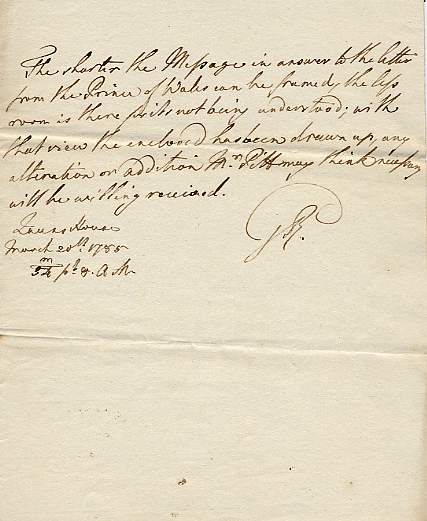 The shorter the Message in answer to the letter
from the Prince of Wales can be framed, the less
room is there for its not being understood; with
that view the enclosed has been drawn up, any
alteration or addition Mr. Pitt may think necessary
will be willing received.
Queens House
March 20th. 1785
m
54 pt. 8. A.M.
GR.